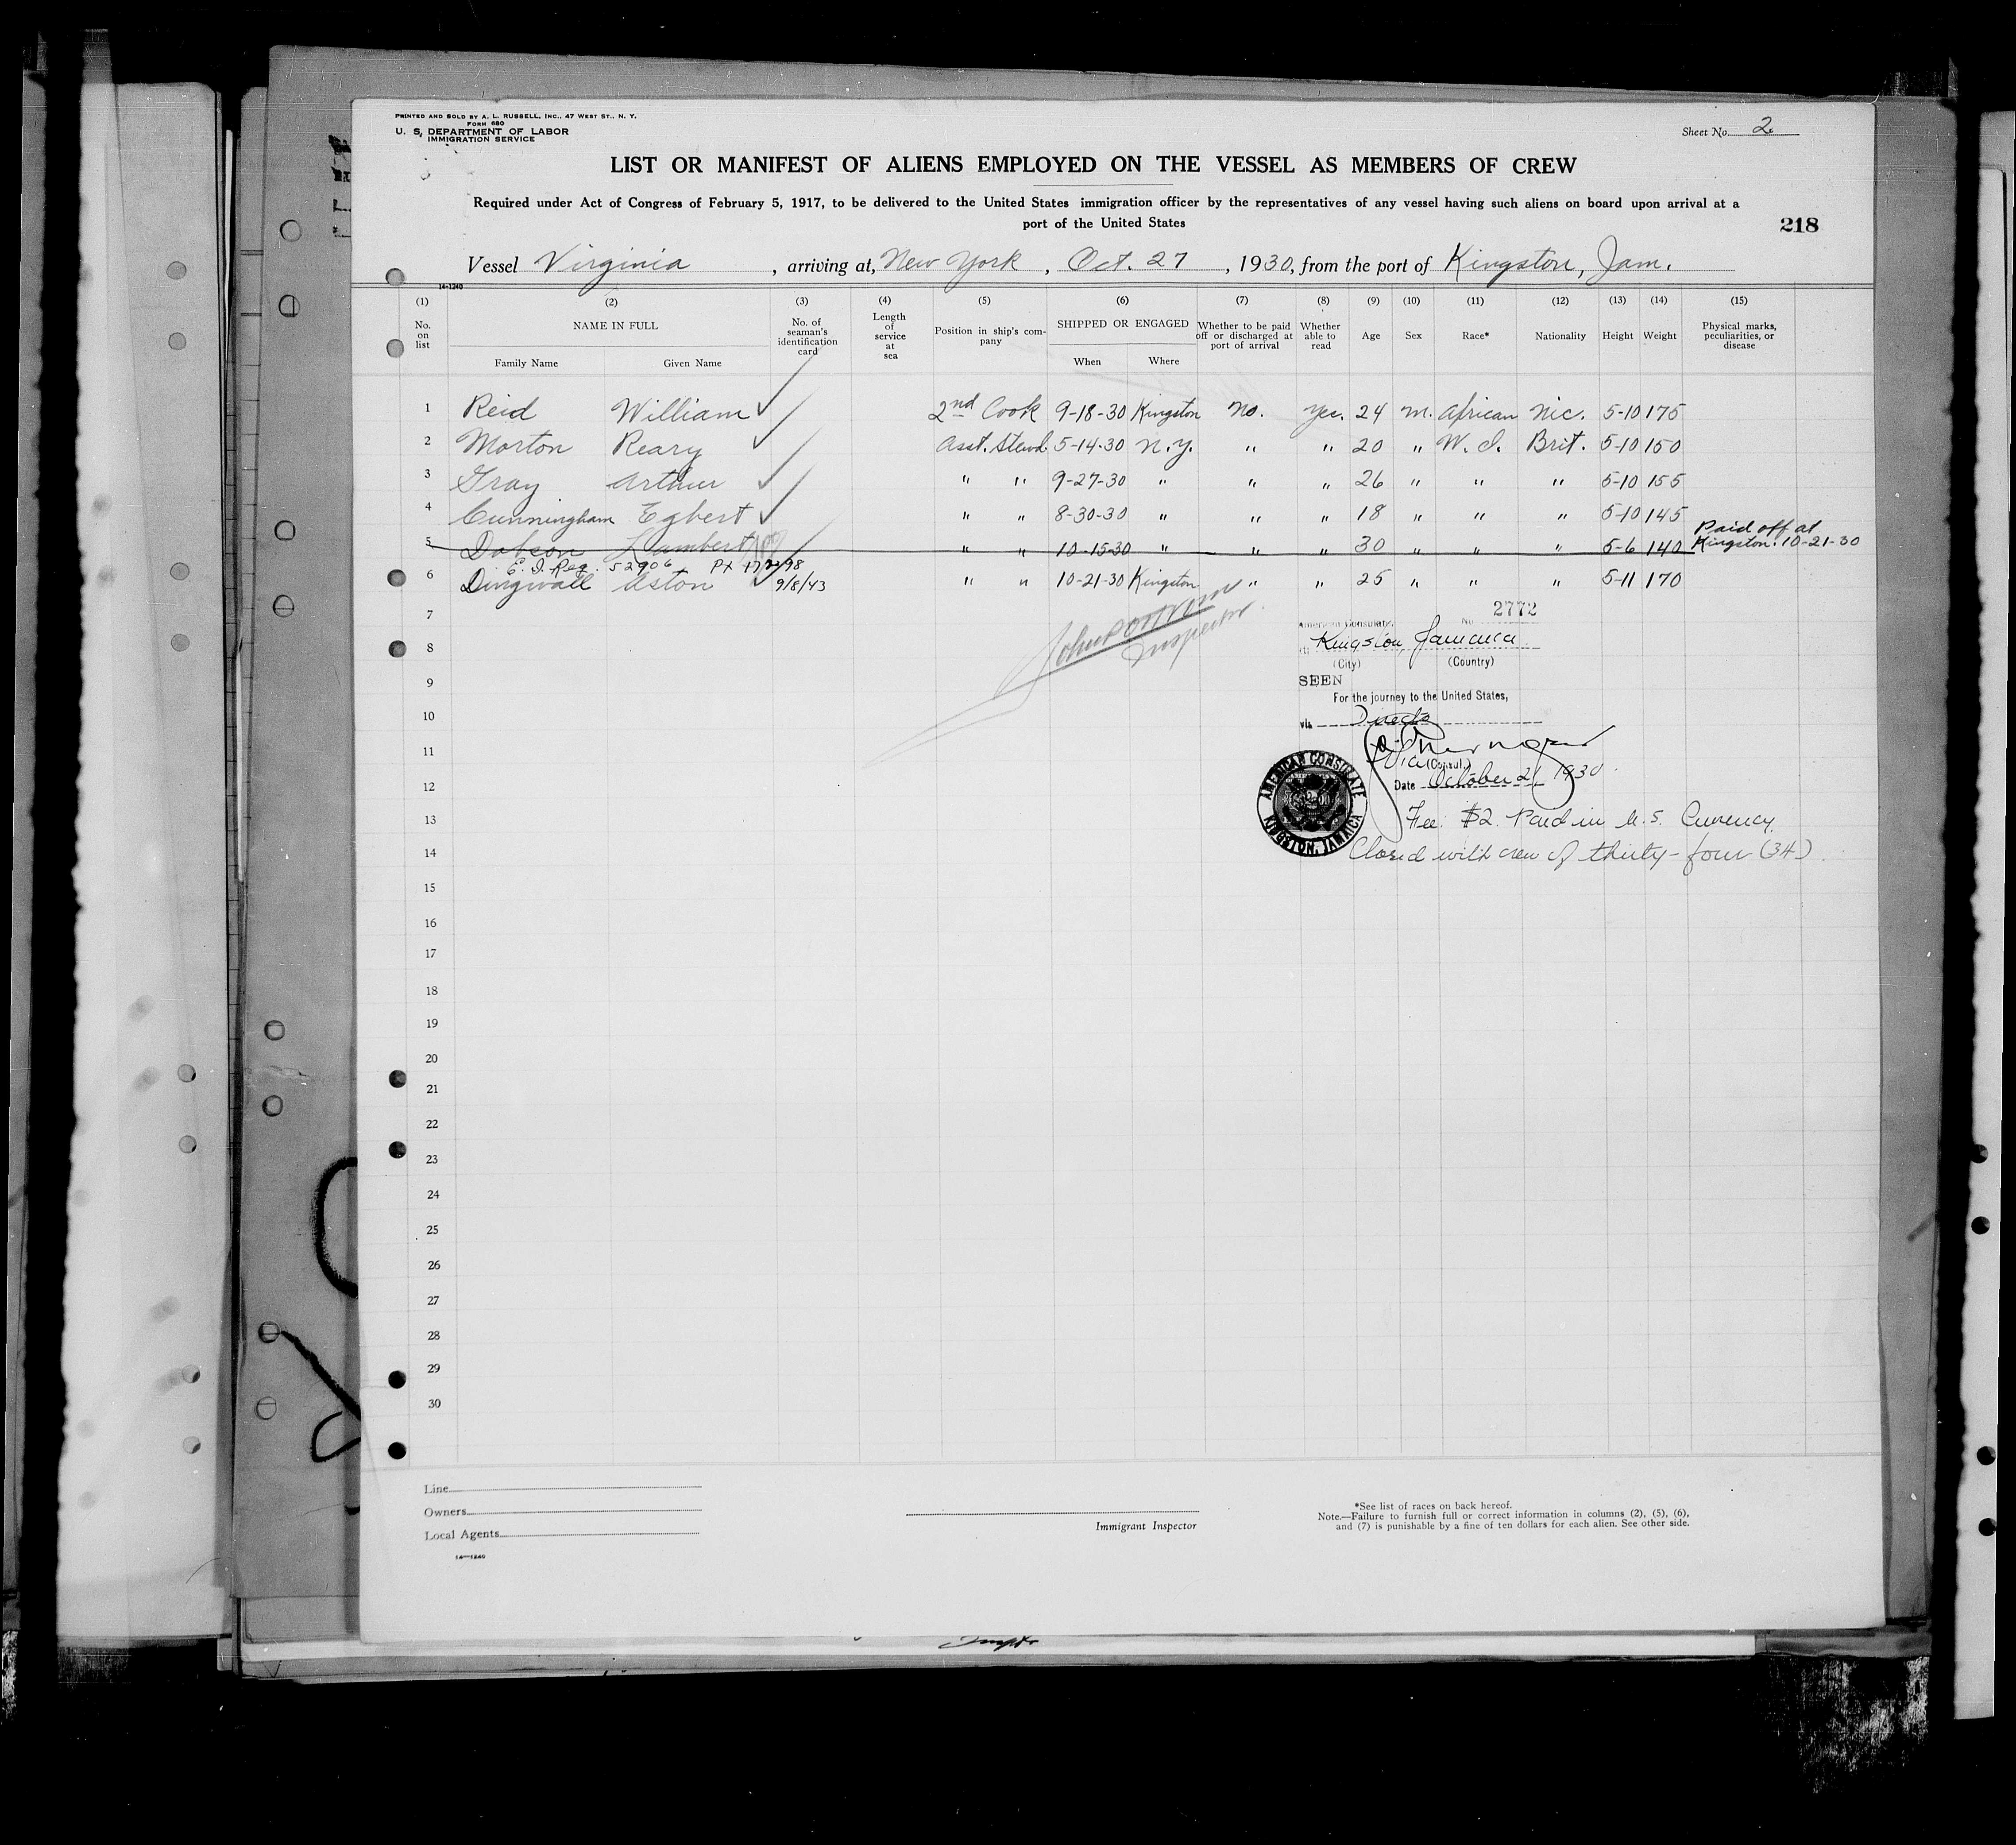 PRINTED AND SOLD BY A. L. RUSSELL, INC., 47 WEST ST., N. Y.
FORM 680
U. S. DEPARTMENT OF LABOR
IMMIGRATION SERVICE
Sheet No. 2
LIST OR MANIFEST OF ALIENS EMPLOYED ON THE VESSEL AS MEMBERS OF CREW
Required under Act of Congress of February 5, 1917, to be delivered to the United States immigration officer by the representatives of any vessel having such aliens on board upon arrival at a
port of the United States
218
Vessel Virginia, arriving at, New York, Oct. 27, 1930, from the port of Kingston, Jam.
14-1240
(1) (2) (3) (4) (5) (6) (7) (8) (9) (10) (11) (12) (13) (14) (15)
No. on list
NAME IN FULL
Family Name Given Name
No. of seaman's identification card
Length of service at sea
Position in ship's company
SHIPPED OR ENGAGED
When Where
Whether to be paid off or discharged at port of arrival
Whether able to read
Age
Sex
Race*
Nationality
Height
Weight
Physical marks, peculiarities, or disease
1 Reid William 2nd Cook 9-18-30 Kingston No. Yes. 24 m. African Nic. 5-10 175
2 Morton Reary Asst. Stewd. 5-14-30 N.Y. " " 20 " W. I. Brit. 5-10 150
3 Gray Arthur " " 9-27-30 " " " 26 " " " 5-10 155
4 Cunningham Egbert " " 8-30-30 " " " 18 " " " 5-10 145
5 Dobson Lambert " " 10-15-30 " " " 30 " " " 5-6 140 Paid off at
Kingston. 10-21-30
E. I. Reg. 52906
6 Dingwall Aston 9/8/43 " " 10-21-30 Kingston " " 25 " " " 5-11 170
7
8
9
10
11
12
13
14
15
16
17
18
19
20
21
22
23
24
25
26
27
28
29
30
Inspector
No 2772
American Consulate
Kingston, Jamaica
(City) (Country)
SEEN
For the journey to the United States,
via Direct
Vice (Consul.)
Date October 21, 1930.
AMERICAN CONSULATE
KINGSTON, JAMAICA
Fee: $2 Paid in U.S. Currency
Closed with crew of thirty-four (34)
Line
Owners
Local Agents
14-1240
Immigrant Inspector
*See list of races on back hereof.
Note.—Failure to furnish full or correct information in columns (2), (5), (6),
and (7) is punishable by a fine of ten dollars for each alien. See other side.